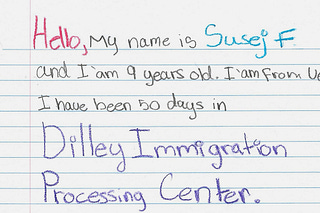 Hello, My name is Susej F.
and I'am 9 years old. I'am from
I have been 50 days in
Dilley Immigration
Processing Center.